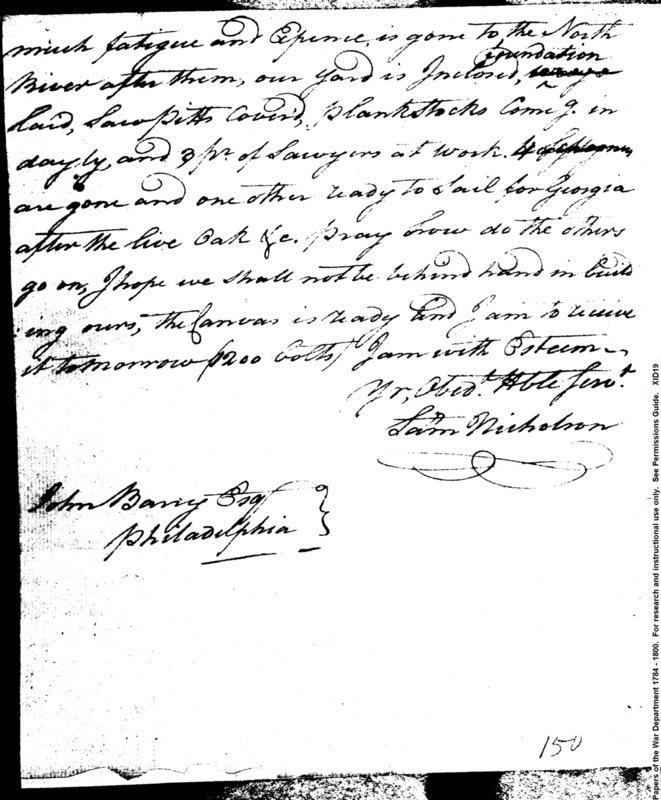 much fatigue and Expence, is gone to the North
River after them, our Yard is Inclosed, foundation
laid, Saw Pitts Cover'd, plank stocks Come g. in
dayly, and 3 pr. of Sawyers at work. 4
are gone and one other ready to Sail for Georgia
after the live Oak &c. pray how do the others
go on, I hope we shall not be behind hand in build
ing ours, the Canvas is ready and I am to receive
it tomorrow (200 bolts) I am with Esteem
Yr, Obedt. Hble Servt.
Saml Nicholson
John Barry Esq
Philadelphia
150
Papers of the War Department 1784 - 1800. For research and instructional use only. See Permissions Guide. XID19